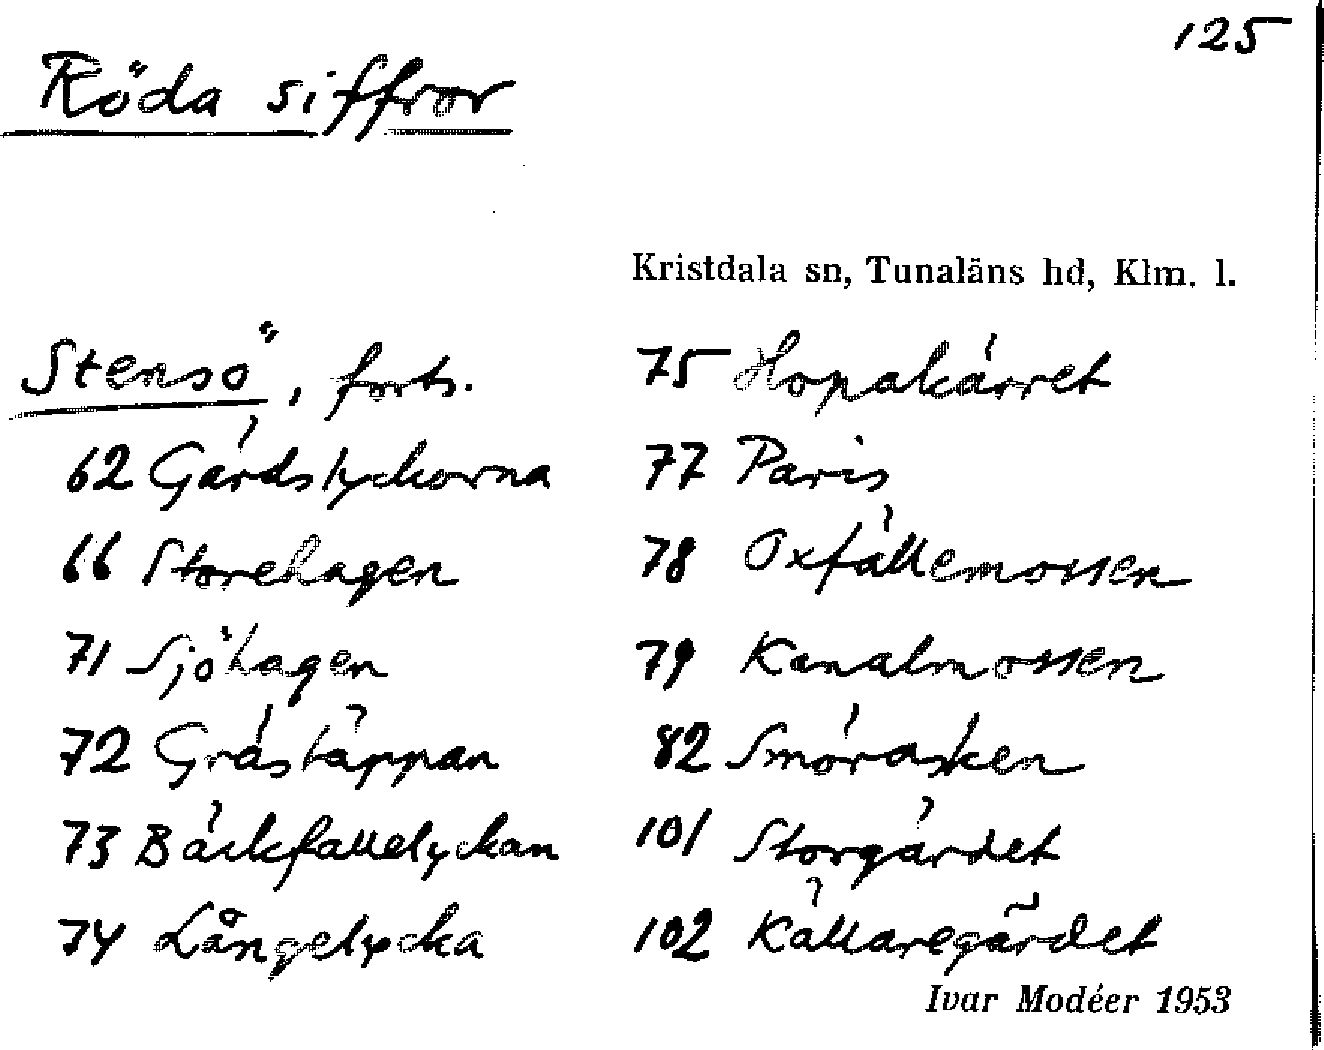 125
Röda siffror
Kristdala sn, Tunaläns hd, Klm. l.
Stensö, forts.
62 Gärdslyckorna
66 Storehagen
71 Sjöhagen
72 Gråstäppan
73 Bäckfallelyckan
74 Långelycka
75 Hopakärret
77 Paris
78 Oxfällemossen
79 Kanalmossen
82 Smörasken
101 Storgärdet
102 Källaregärdet
Ivar Modéer 1953